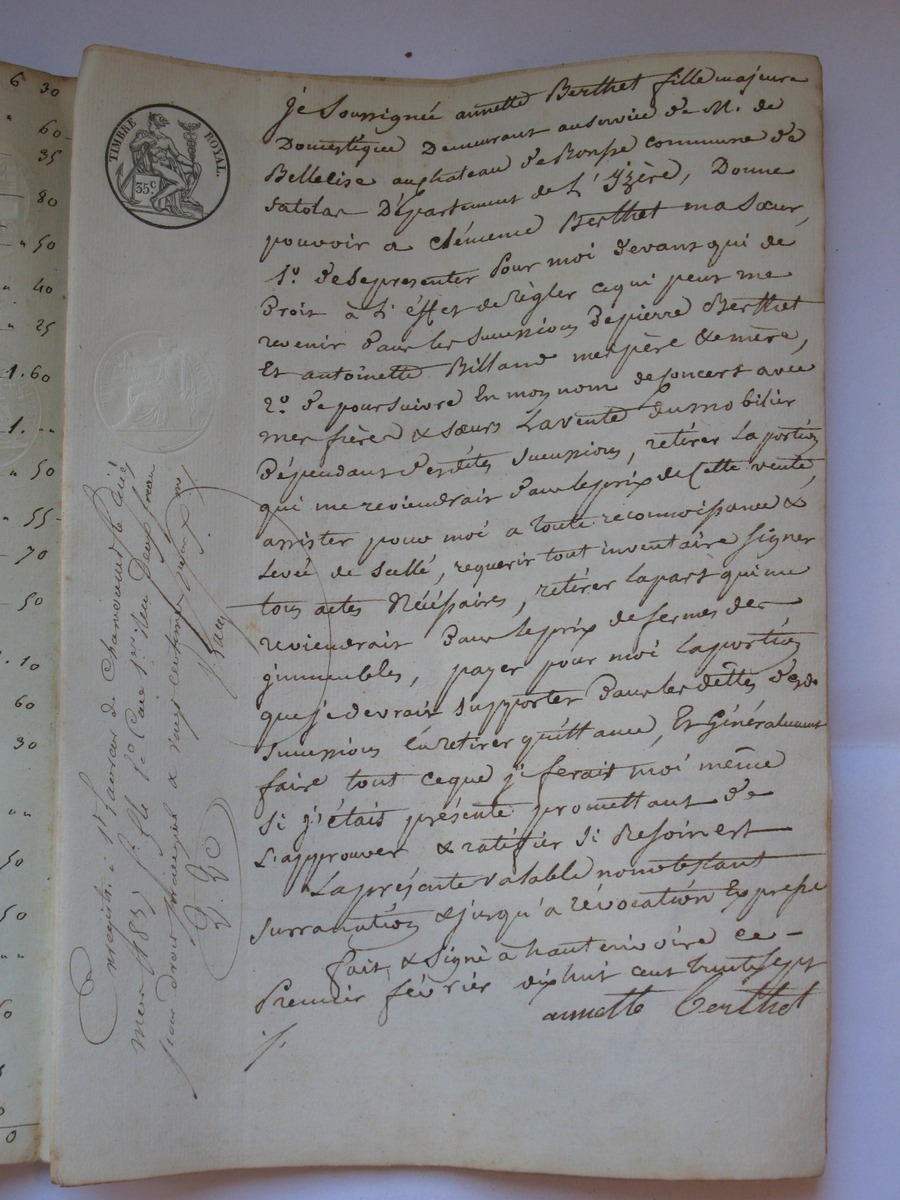 6 30
" 60
35
80
" 50
" 40
" 25
1.60
1. "
" 50
" 55
70
50
1.10
60
30
" "
50
50
" "
50
0
TIMBRE ROYAL.
35 C
je soussignée annette Berthet fille majeure
Domestique Demeurant au service de M. de
Bellelise au chateau de Bonpe commune de
Satolas Département de L'Izère, Donne
pouvoir a Clémence Berthet ma Sœur,
1º de se presenter pour moi devant qui de
Droit à L'effet de règler ce qui peut me
revenir Dans les successions de pierre Berthet
Et antoinette Billand mes père & mère,
2º de poursuivre En mon nom de concert avec
mes frères & sœurs La vente du mobilier
Dépendant desdites successions, retirer La portion
qui me reviendrait Dans le prix de Cette vente,
assister pour moi a toute reconnoissance &
Levée de scellé, requerir tout inventaire signer
tous actes Nécéssaires, retirer La part qui me
reviendrait Dans le prix de fermes des
jmmeubles, payer pour moi La portion
que je devrais supporter Dans les dettes desd.
successions En retirer quittance, Et Généralement
faire tout ce que je ferais moi même
Si j'étais présente promettant de
L'approuver & ratifier si Besoin est
La présente valable nonobstant
surranation & jusqu'a révocation Expresse
fait & signé a hauterivoire ce
Premier février dixhuit cent trente sept
annette berthet
Enregistré à St Laurent de Chamousset le
mars 1837 fº Rº Cº Reçu Deux francs
pour droit principal & vingt centimes pour